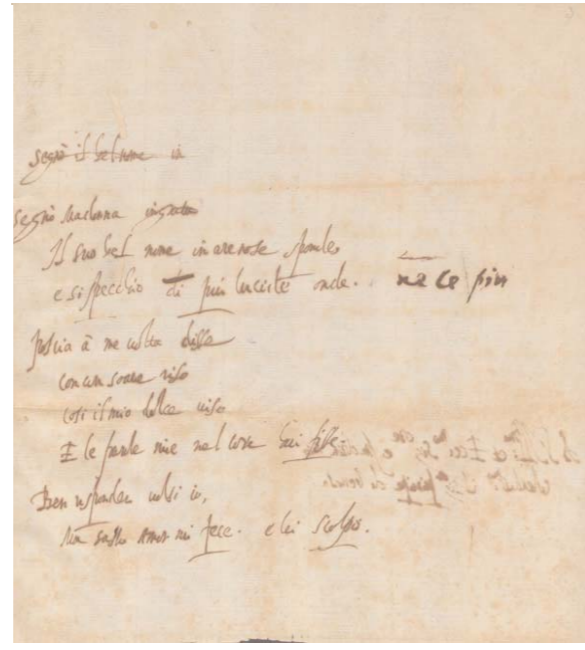 segnò il bel nome in
segnò Madonna
Il suo bel nome in arenose sponde
e si specchio di piu lucide onde. ne le piu
poscia à me volta disse
con un soave riso
cosi il mio dolce viso
E le parole mie nel core hai fisse
Ben risponder volsi io,
Ma sasso Amor mi fece. e lei